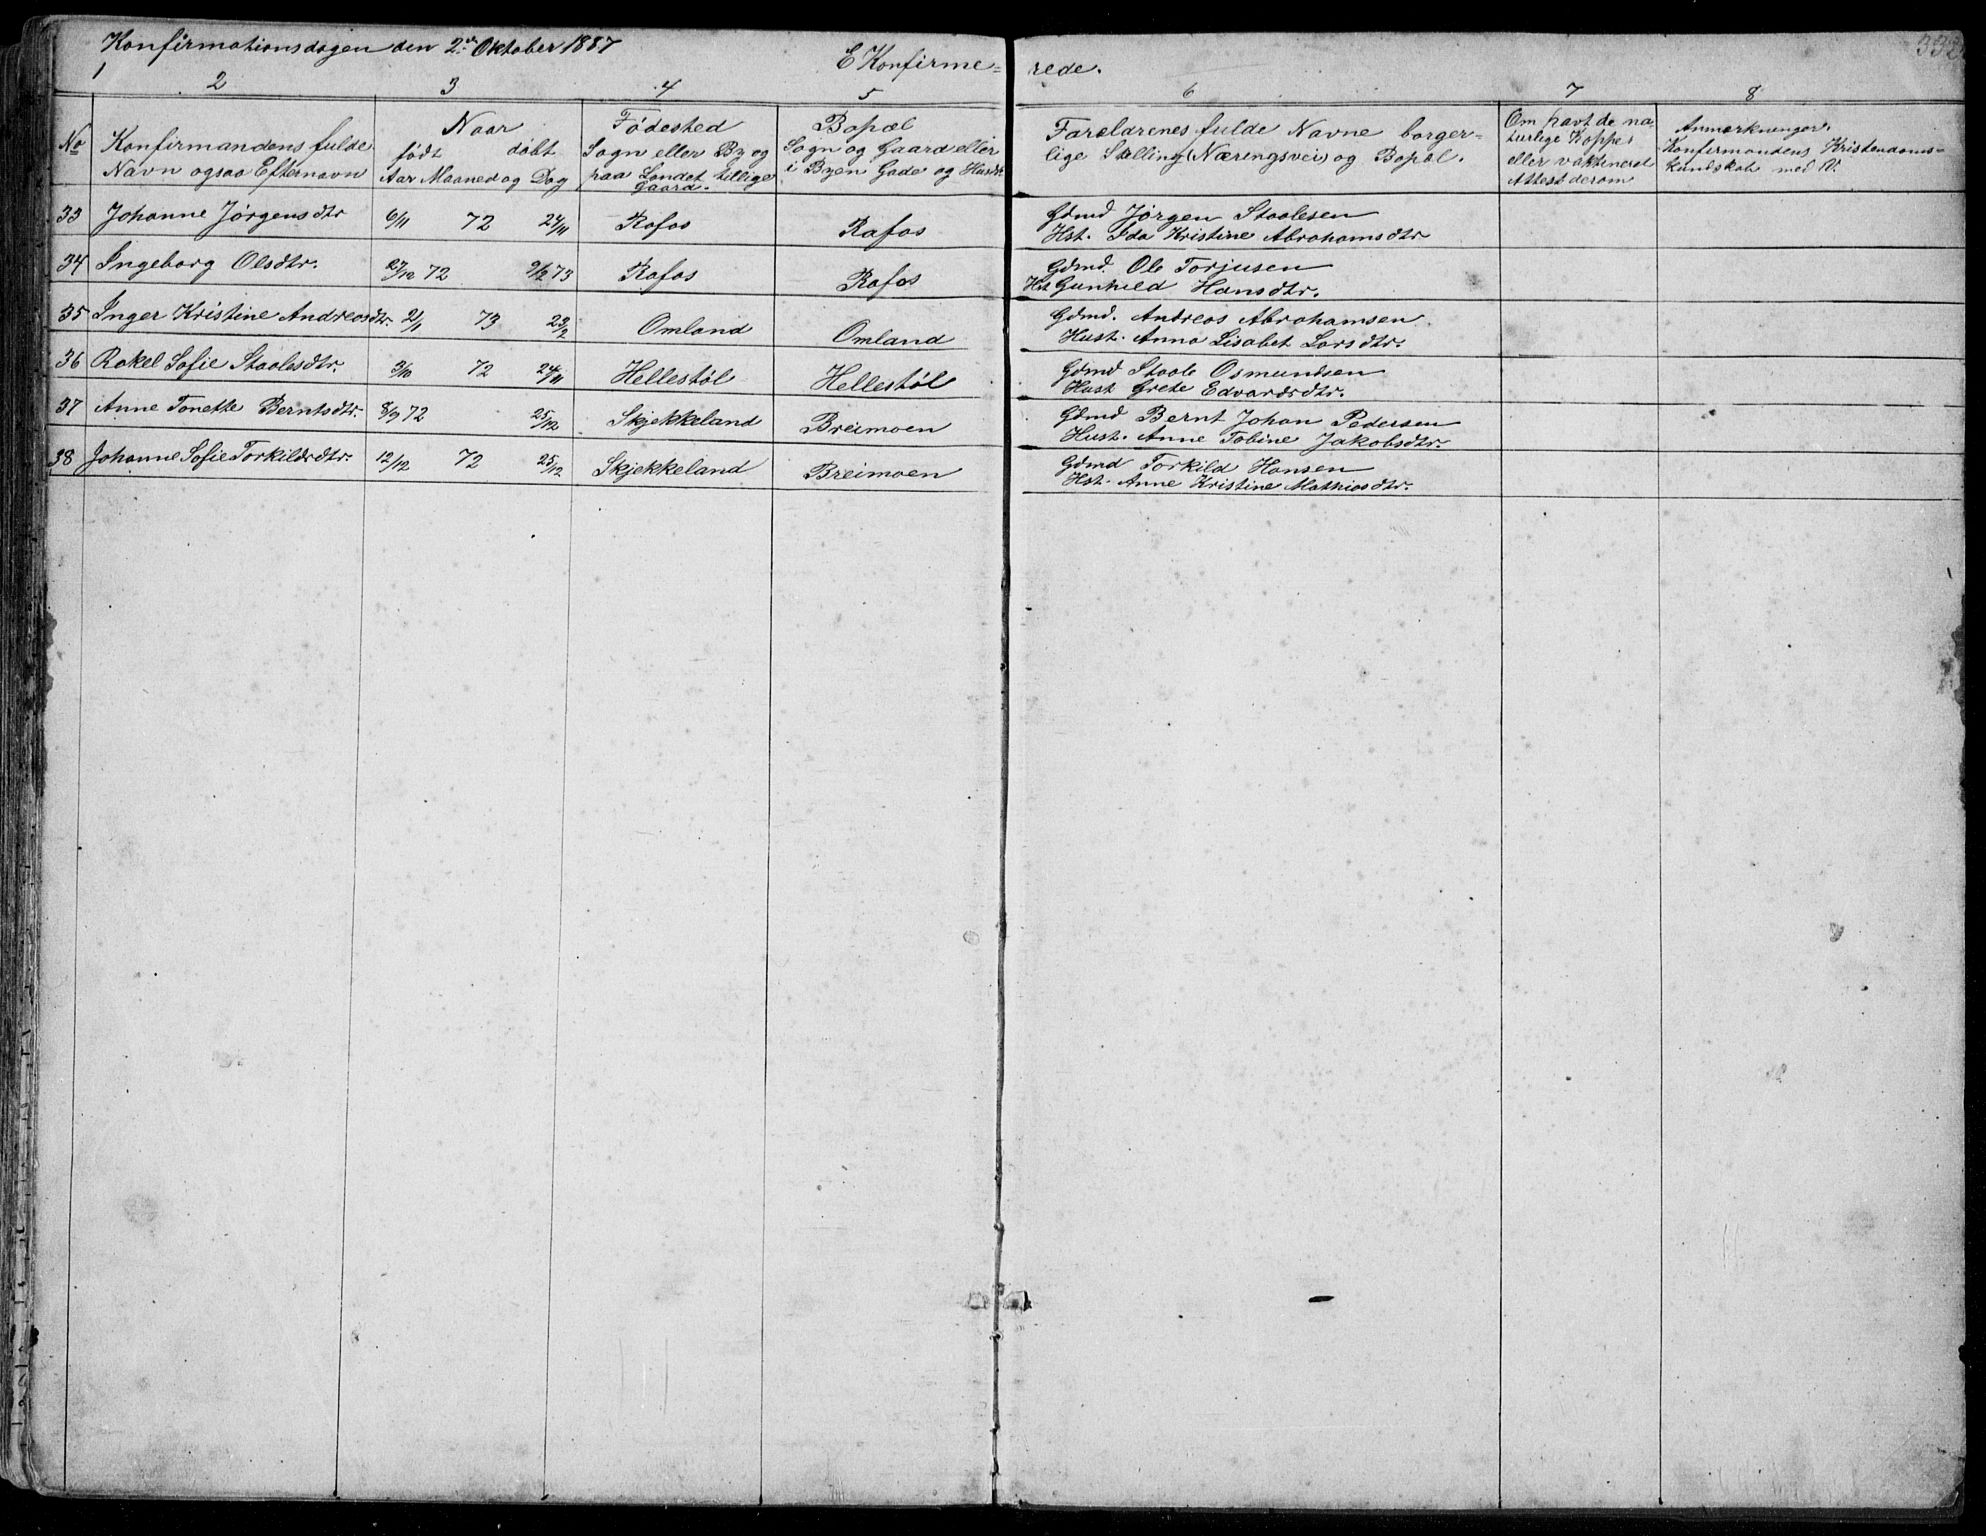 Konfirmationsdagen den 2den Oktober 1887
E Konfirme= rede.
332
1 2 3 4 5 6 7 8
No
Konfirmandens fulde
Navn ogsaa Efternavn
Naar
født døbt
Aar Maaned og Dag
Fødested
Sogn eller By og
paa Landet tillige
Gaard.
Bopæl
Sogn og Gaard eller
i Byen Gade og Husnr.
Forældrenes fulde Navne borger=
lige Stilling (Næringsvei) og Bopæl.
Om havt de na=
turlige Kopper
eller vakcineret
Attest derom
Anmærkninger.
Konfirmandens Kristendoms=
kundskab med V.
33 Johanne Jørgensdtr 6/11 72 24/11 Rafos Rafos Gdmd Jørgen Staalesen
Hst. Ida Kristine Abrahamsdtr
34 Ingeborg Olsdtr. 27/12 72 9/2 73 Rafos Rafos Gdmd. Ole Torjusen
Hst Gunhild Hansdtr.
35 Inger Kristine Andreasdtr. 2/1 73 23/2 Omland Omland Gdmd. Andreas Abrahamsen
Hust. Anna Lisabet Larsdtr.
36 Rakel Sofie Staalesdtr. 3/10 72 24/11 Hellestøl Hellestøl Gdmd Staale Osmundsen
Hust Grete Edvardsdtr.
37 Anne Tonette Berntsdtr. 8/9 72 25/12 Skjekkeland Breimoen Gdmd Bernt Johan Pedersen
Hust. Anne Tobine Jakobsdtr.
38 Johanne Sofie Torkildsdtr. 12/12 72 25/12 Skjekkeland Breimoen Gdmd Torkild Hansen
Hst. Anne Kristine Mathiasdtr.